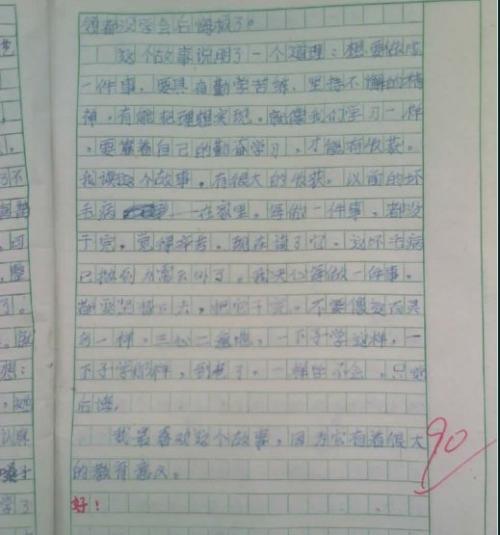 领都没学会后悔极了。
这个故事说明了一个道理：想要做成
一件事，要具有勤学苦练、坚持不懈的精
神，有能把理想实现。就像我们学习一样
，要靠着自己的勤奋学习，才能有收获。
我读这个故事，有很大的收获。以前的坏
毛病 一在家里，每做一件事，都没
干完，觉得辛苦。现在读了它，这坏毛病
已抛到九霄云外了。我决心每做一件事，
都要坚持下去，把它干完。不要像
一样，三心二意地，一下子学这样，一
下子学那样，到老了，一样也不会，只好
后悔。
我最喜欢这个故事，因为它有着很大
的教育意义。
好！
90